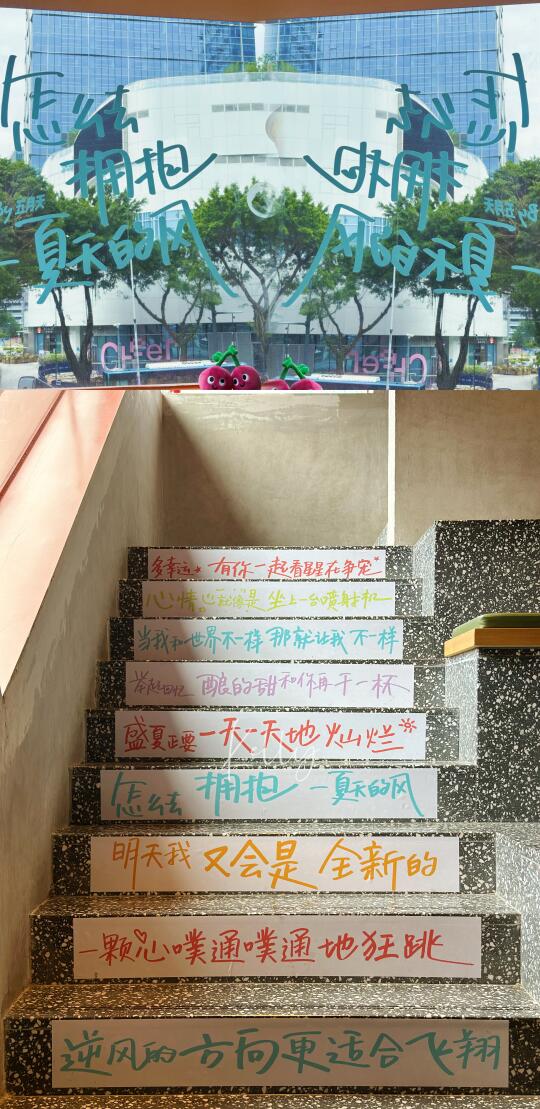 怎么去
拥抱
一夏天的风
By 五月天
Cheer
多幸运 有你一起看星星在争宠
心情也就像是坐上一台喷射机
当我和世界不一样 那就让我不一样
举起回忆 酿的甜 和你再干一杯
盛夏正要一天一天地灿烂
Kelly
怎么去 拥抱 一夏天的风
明天我 又会是 全新的
一颗心噗通噗通地狂跳
逆风的方向更适合飞翔